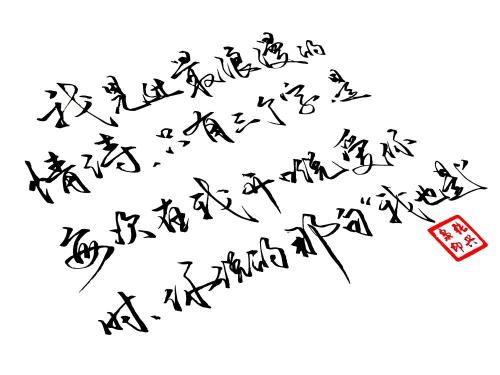 我见过最浪漫的
情诗.只有三个字是
每次在我开口说爱你
时、你说的那句“我也是”